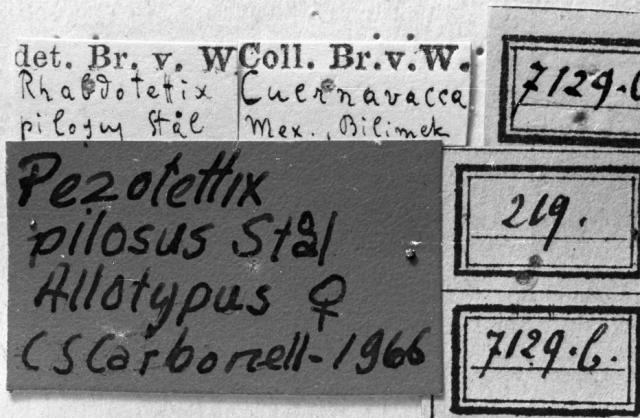 det. Br. v. W
Rhabdotettix
pilosus Stål
Coll. Br.v.W.
Cuernavacca
Mex., Bilimek
7129.
219.
7129.b.
Pezotettix
pilosus Stål
Allotypus ♀
CSCarbonell-1966